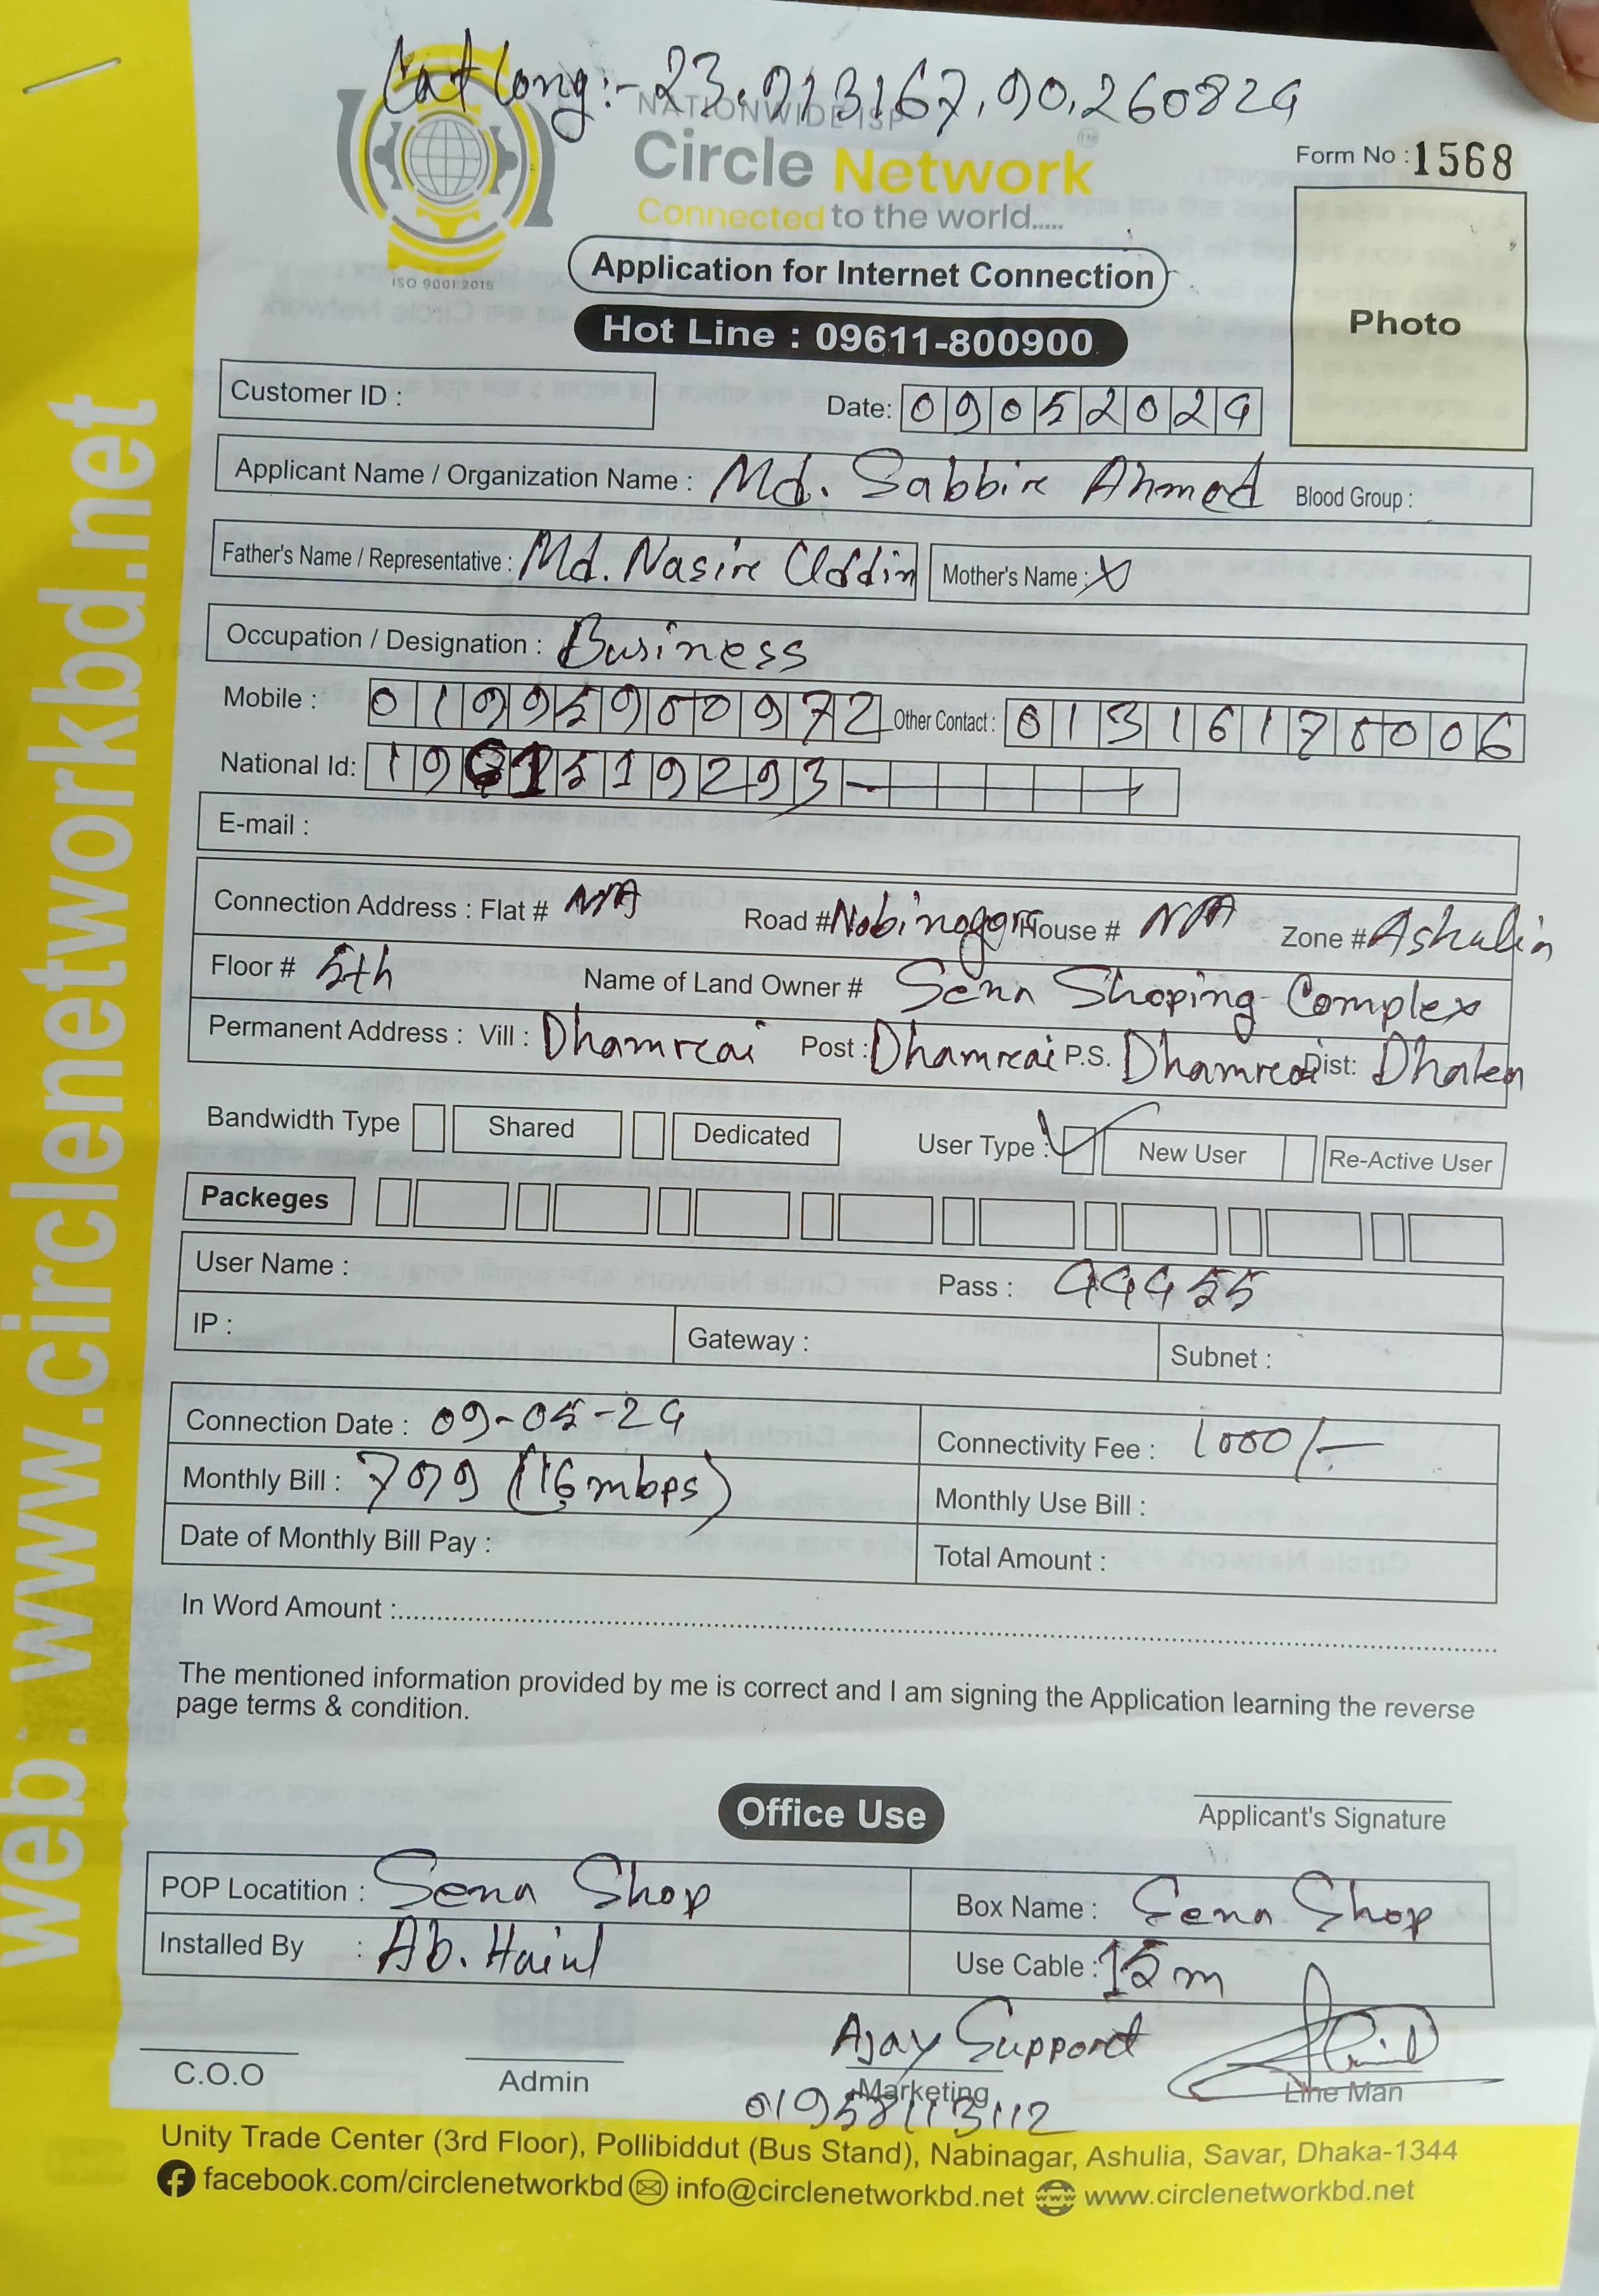 Lat Long:- 23.913167, 90.260824
NATIONWIDE ISP
Circle Network™
Connected to the world.....
ISO 9001:2015
Form No : 1568
Photo
Application for Internet Connection
Hot Line : 09611-800900
Customer ID :
Date: 09052024
Applicant Name / Organization Name : Md. Sabbir Ahmed Blood Group :
Father's Name / Representative : Md. Nasir Uddin Mother's Name : X
Occupation / Designation : Business
Mobile : 01995900972 Other Contact : 01316170006
National Id: 19 1519293-
E-mail :
Connection Address : Flat # N/A Road # Nobinogor House # N/A Zone # Ashulia
Floor # 5th Name of Land Owner # Sena Shoping Complex
Permanent Address : Vill : Dhamrai Post : Dhamrai P.S. Dhamrai Dist: Dhaka
Bandwidth Type Shared Dedicated User Type : ✓ New User Re-Active User
Packeges
User Name : Pass : 44455
IP : Gateway : Subnet :
Connection Date : 09-05-24 Connectivity Fee : 1000/-
Monthly Bill : 709 (16 mbps) Monthly Use Bill :
Date of Monthly Bill Pay : Total Amount :
In Word Amount :
The mentioned information provided by me is correct and I am signing the Application learning the reverse
page terms & condition.
Applicant's Signature
Office Use
POP Locatition : Sena Shop Box Name : Sena Shop
Installed By : Ab. Use Cable : 15m
Ajay Support
C.O.O Admin Marketing Line Man
01958113112
Unity Trade Center (3rd Floor), Pollibiddut (Bus Stand), Nabinagar, Ashulia, Savar, Dhaka-1344
facebook.com/circlenetworkbd info@circlenetworkbd.net www.circlenetworkbd.net
web: www.circlenetworkbd.net